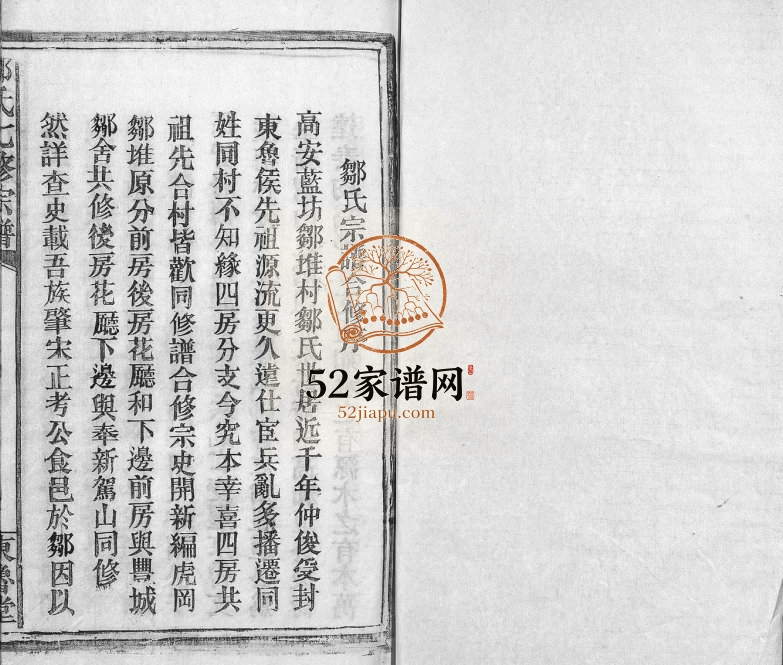 鄒氏宗譜合修序
高安藍坊鄒堆村鄒氏世居近千年仲俊受封
東魯侯先祖源流更久遠仕宦兵亂多播遷同
姓同村不知緣四房分支今究本幸喜四房共
祖先合村皆歡同修譜合修宗史開新編虎岡
鄒堆原分前房後房花廳和下邊前房與豐城
鄒舍共修後房花廳下邊與奉新駕山同修
然詳查史載吾族肇宋正考公食邑於鄒因以
鄒氏七修宗譜
東魯堂
52家谱网
52jiapu.com